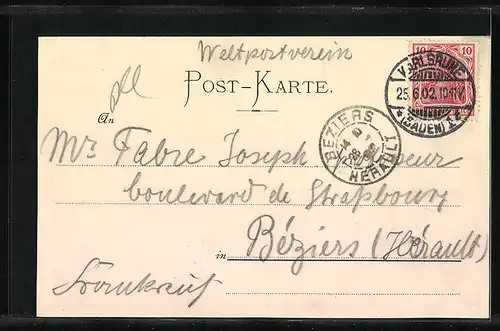 Weltpostverein
POST-KARTE.
10 10
KARLSRUHE
25.6.02. 10-11V.
* (BADEN) 1 *
BEZIERS
HERAULT
An
Mr Fabre Joseph
boulevard de Strasbourg
in Béziers (Hérault)
Frankreich